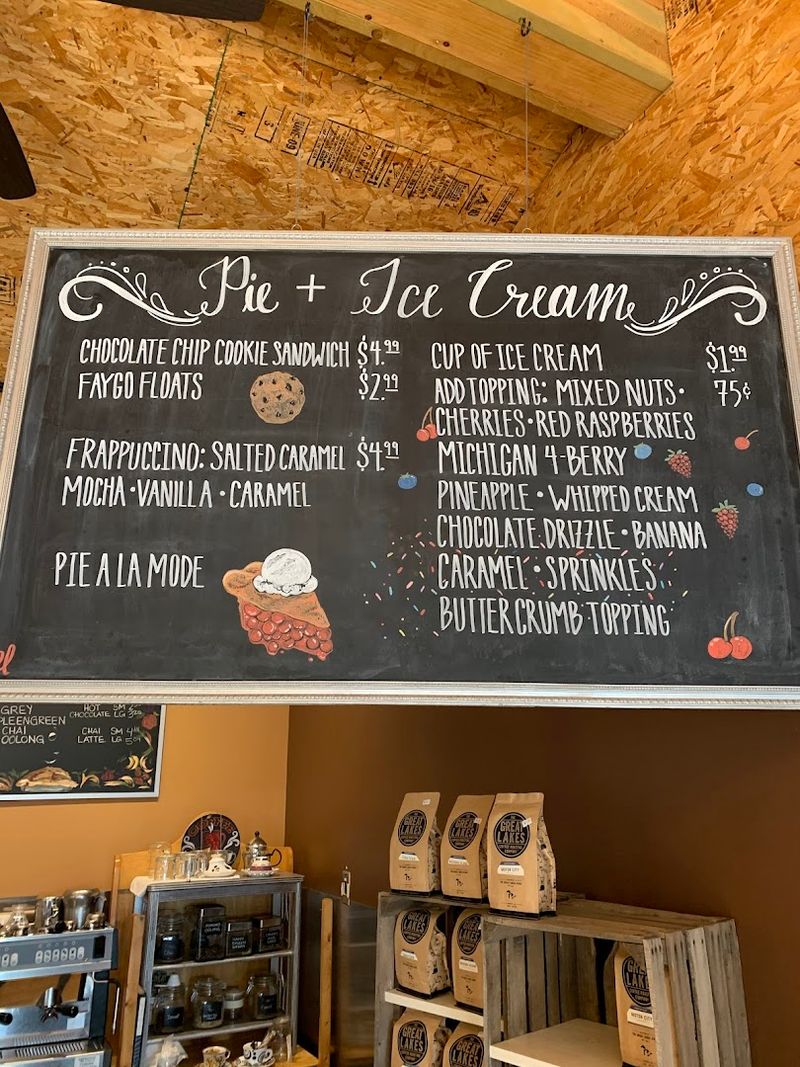 Pie + Ice Cream
CHOCOLATE CHIP COOKIE SANDWICH $4.99
FAYGO FLOATS $2.99
FRAPPUCCINO: SALTED CARAMEL $4.99
MOCHA • VANILLA • CARAMEL
PIE A LA MODE
CUP OF ICE CREAM $1.99
ADD TOPPING: MIXED NUTS • 75¢
CHERRIES • RED RASPBERRIES
MICHIGAN 4-BERRY
PINEAPPLE • WHIPPED CREAM
CHOCOLATE DRIZZLE • BANANA
CARAMEL • SPRINKLES
BUTTER CRUMB TOPPING
GREY
PLEENGREEN
CHAI
OOLONG
HOT SM
CHOCOLATE LG
CHAI SM
LATTE LG
GREAT LAKES
GREAT LAKES
GREAT LAKES
GREAT LAKES
GREAT LAKES
GREAT LAKES
GREAT LAKES
MOTOR CITY